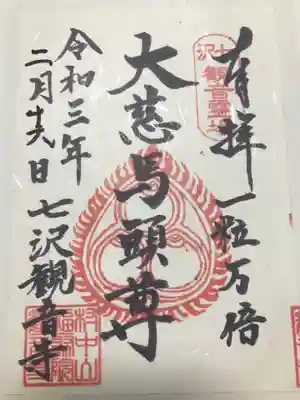 奉拝 一粒万倍
七沢
観音霊場
大慈馬頭尊
令和三年
二月十六日 七沢観音寺